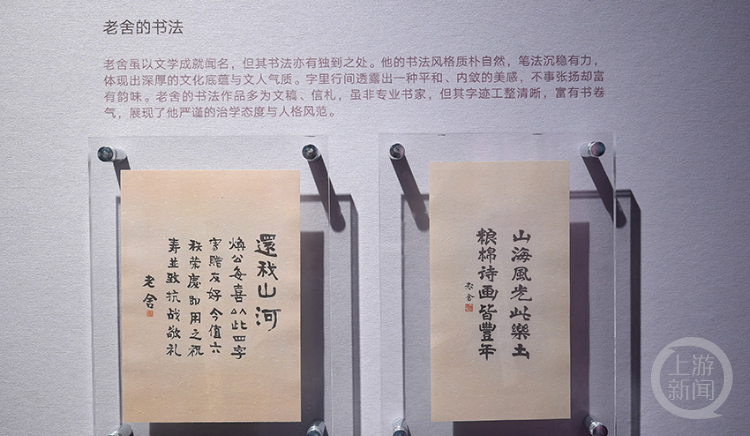 老舍的书法
老舍虽以文学成就闻名，但其书法亦有独到之处。他的书法风格质朴自然，笔法沉稳有力，
体现出深厚的文化底蕴与文人气质。字里行间透露出一种平和、内敛的美感，不事张扬却富
有韵味。老舍的书法作品多为文稿、信札，虽非专业书家，但其字迹工整清晰，富有书卷
气，展现了他严谨的治学态度与人格风范。
還我山河
焕公每喜以此四字
寫贈友好今值六
秩荣慶即用之祝
寿並致抗战敬礼
老舍
山海風光此樂土
粮棉诗画皆豐年
老舍
上游新闻